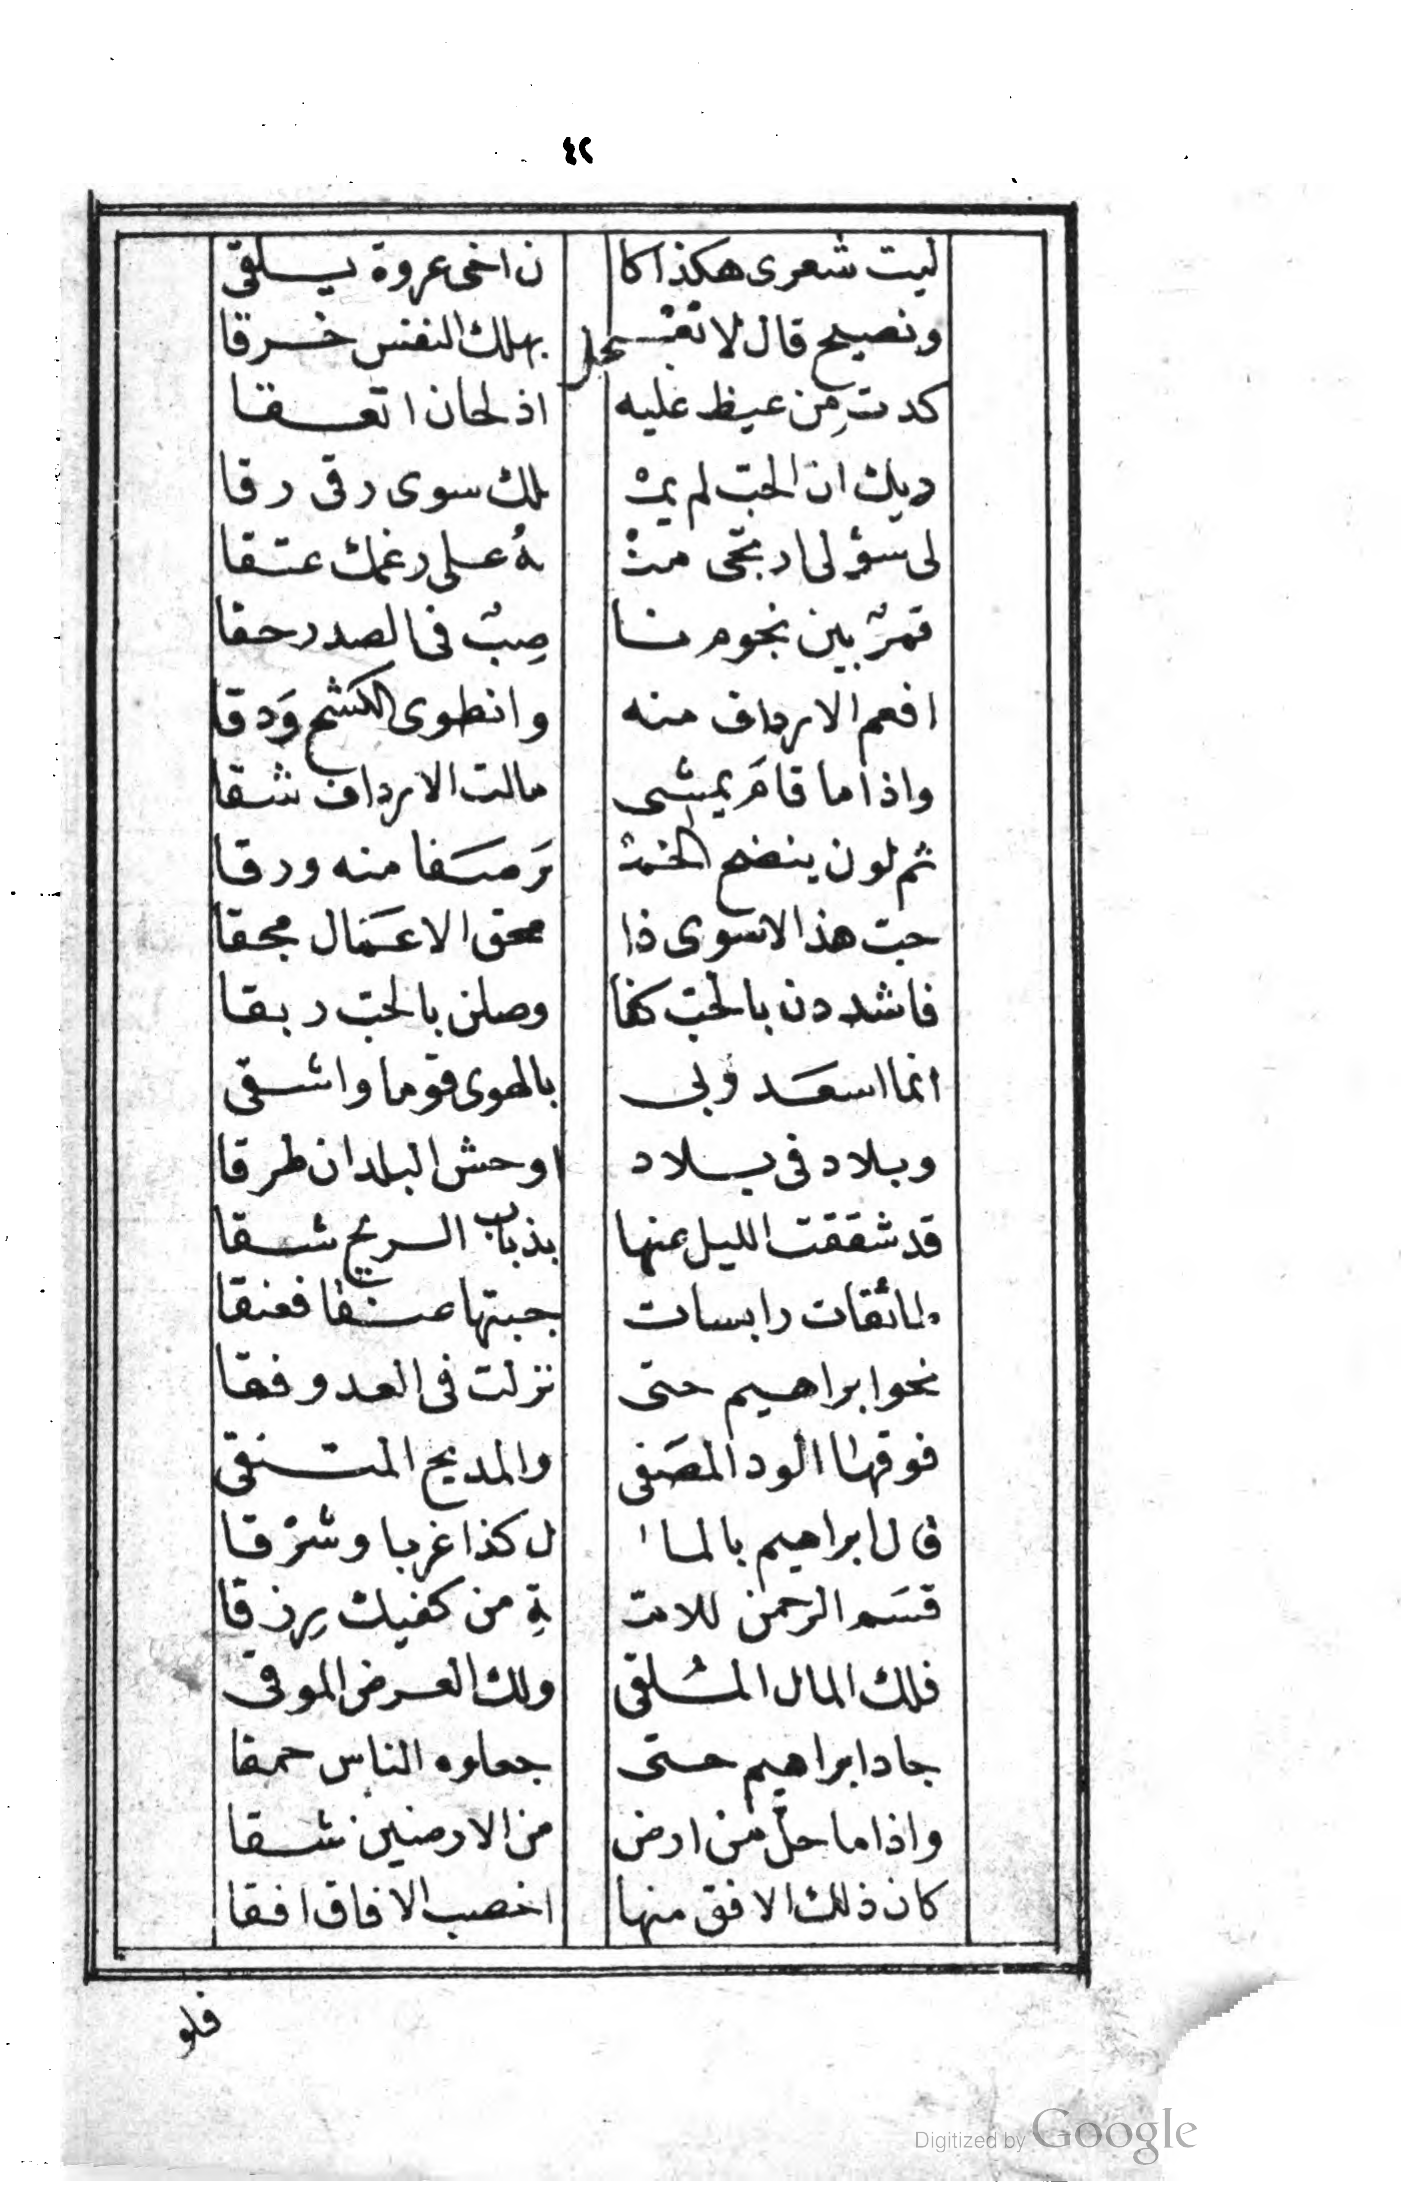 ٤٢
ليت شعرى هكذا كا ن اخى عروة يلقى
ونصيح قال لا تعجل بهلك النفس خرقا
كدت مِن غيظ عليه اذ لحان اتفقا
ويك ان الحبّ لم يمْ لك سوى رقى رقا
لى سؤلى ارتجى منْ هُ على رغمك عتقا
قمرٌ بين نجوم نا صِبٌ فى الصدر حقا
افعم الارداف منه وانطوى الكشح وَدقا
واذا ما قامَ يمشى مالت الارداف شقا
ثم لون ينضح الخمْ رَ صَفا منه ورقا
حبّ هذا لا سوى ذا محق الاعمَال محقا
فاشددن بالحبّ كفا وصلن بالحبّ ربقا
انما اسعَد وبى بالهوى قوما واشقى
وبلاد فى بلاد اوحش البلدان طرقا
قد شققت الليل عنها بذباب الريح شقا
مائقات راسات جبتها عنقا فعنقا
نحو ابراهيم حتى نزلت فى العد وفقا
فوقها الود المصَفى والمديح المتنقى
قال ابراهيم بالما ل كذا غربا وشرْقا
قسَم الرحمن للامّ ةِ من كفيك رِزقا
فلك المال المُلقى ولك العرض الموقى
جاد ابراهيم حتى جعلوه الناس حمقا
واذا ما حلّ من ارض من الارضين شقا
كان ذلك الافق منها اخصب الافاق افقا
فلو
Digitized by Google